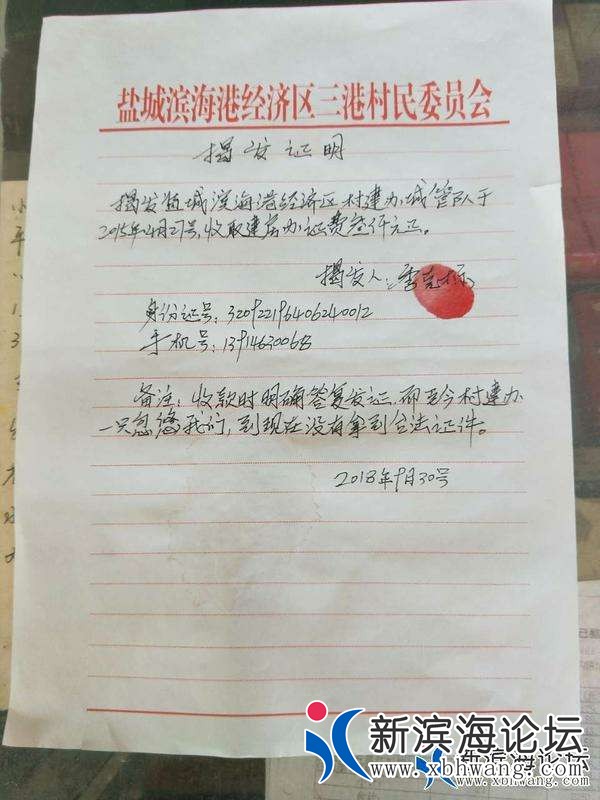 盐城滨海港经济区三港村民委员会
揭发证明
揭发盐城滨海港经济区村建办,城管队于
2015年4月27号,收取建房办证费叁仟元正。
揭发人:季克标
身份证号:320922196406240012
手机号:13914630068
备注:收款时明确答复发证,而至今村建办
一只忽悠我们,到现在没有拿到合法证件。
2018年9月30号
新滨海论坛
www.xbhwang.com
新滨海论坛
www.xbhwang.com